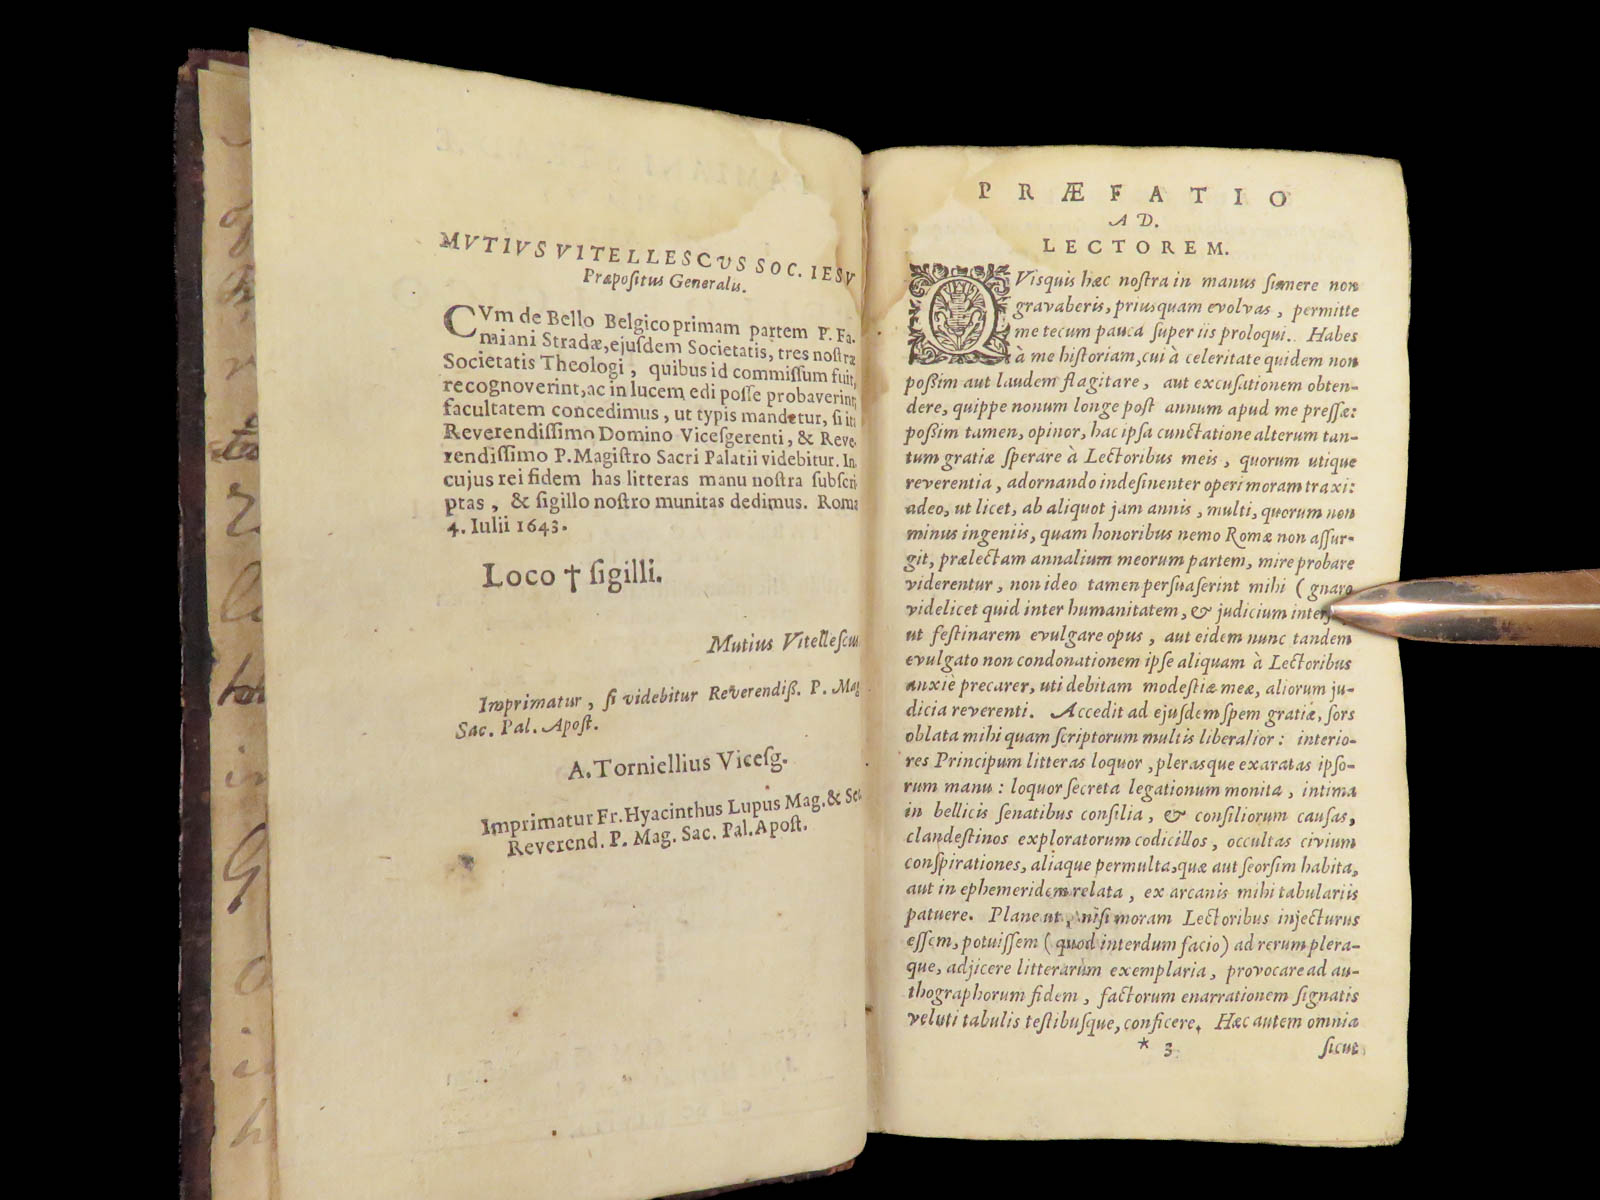 MVTIVS VITELLESCVS SOC. IESV
Præpositus Generalis.
CVm de Bello Belgico primam partem P. Fa-
miani Stradæ, ejuſdem Societatis, tres noſtræ
Societatis Theologi, quibus id commiſſum fuit,
recognoverint, ac in lucem edi poſſe probaverint,
facultatem concedimus, ut typis mandetur, ſi ita
Reverendiſſimo Domino Viceſgerenti, & Reve-
rendiſſimo P. Magiſtro Sacri Palatii videbitur. In
cujus rei fidem has litteras manu noſtra ſubſcri
ptas, & ſigillo noſtro munitas dedimus. Romæ
4. Iulii 1643.
Loco † ſigilli.
Mutius Vitelleſcus
Imprimatur, ſi videbitur Reverendiß. P. Mag
Sac. Pal. Apoſt.
A. Torniellius Viceſg.
Imprimatur Fr. Hyacinthus Lupus Mag. &
Reverend. P. Mag. Sac. Pal. Apoſt.
PRÆFATIO
AD.
LECTOREM.
QVisquis hæc noſtra in manus ſumere non
gravaberis, priusquam evolvas, permitte
me tecum pauca ſuper iis proloqui. Habes
à me hiſtoriam, cui à celeritate quidem non
poßim aut laudem flagitare, aut excuſationem obten-
dere, quippe nonum longe poſt annum apud me preſſæ:
poßim tamen, opinor, hac ipſa cunctatione alterum tan-
tum gratiæ ſperare à Lectoribus meis, quorum utique
reverentia, adornando indeſinenter operi moram traxi:
adeo, ut licet, ab aliquot jam annis, multi, quorum non
minus ingeniis, quam honoribus nemo Romæ non aſſur-
git, prælectam annalium meorum partem, mire probare
viderentur, non ideo tamen perſuaſerint mihi (gnaro
videlicet quid inter humanitatem, & judicium
ut feſtinarem evulgare opus, aut eidem nunc tandem
evulgato non condonationem ipſe aliquam à Lectoribus
anxiè precarer, uti debitam modeſtiæ meæ, aliorum ju-
dicia reverenti. Accedit ad ejuſdem ſpem gratiæ, ſors
oblata mihi quam ſcriptorum multis liberalior: interio-
res Principum litteras loquor, plerasque exaratas ipſo-
rum manu: loquor ſecreta legationum monita, intima
in bellicis ſenatibus conſilia, & conſiliorum cauſas,
clandeſtinos exploratorum codicillos, occultas civium
conſpirationes, aliaque permulta, quæ aut ſeorſim habita,
aut in ephemeridem relata, ex arcanis mihi tabulariis
patuere. Plane ut, niſi moram Lectoribus injecturus
eſſem, potuiſſem (quod interdum facio) ad rerum plera-
que, adjicere litterarum exemplaria, provocare ad au-
thographorum fidem, factorum enarrationem ſignatis
veluti tabulis teſtibuſque, conficere. Hæc autem omnia
* 3 ſicut